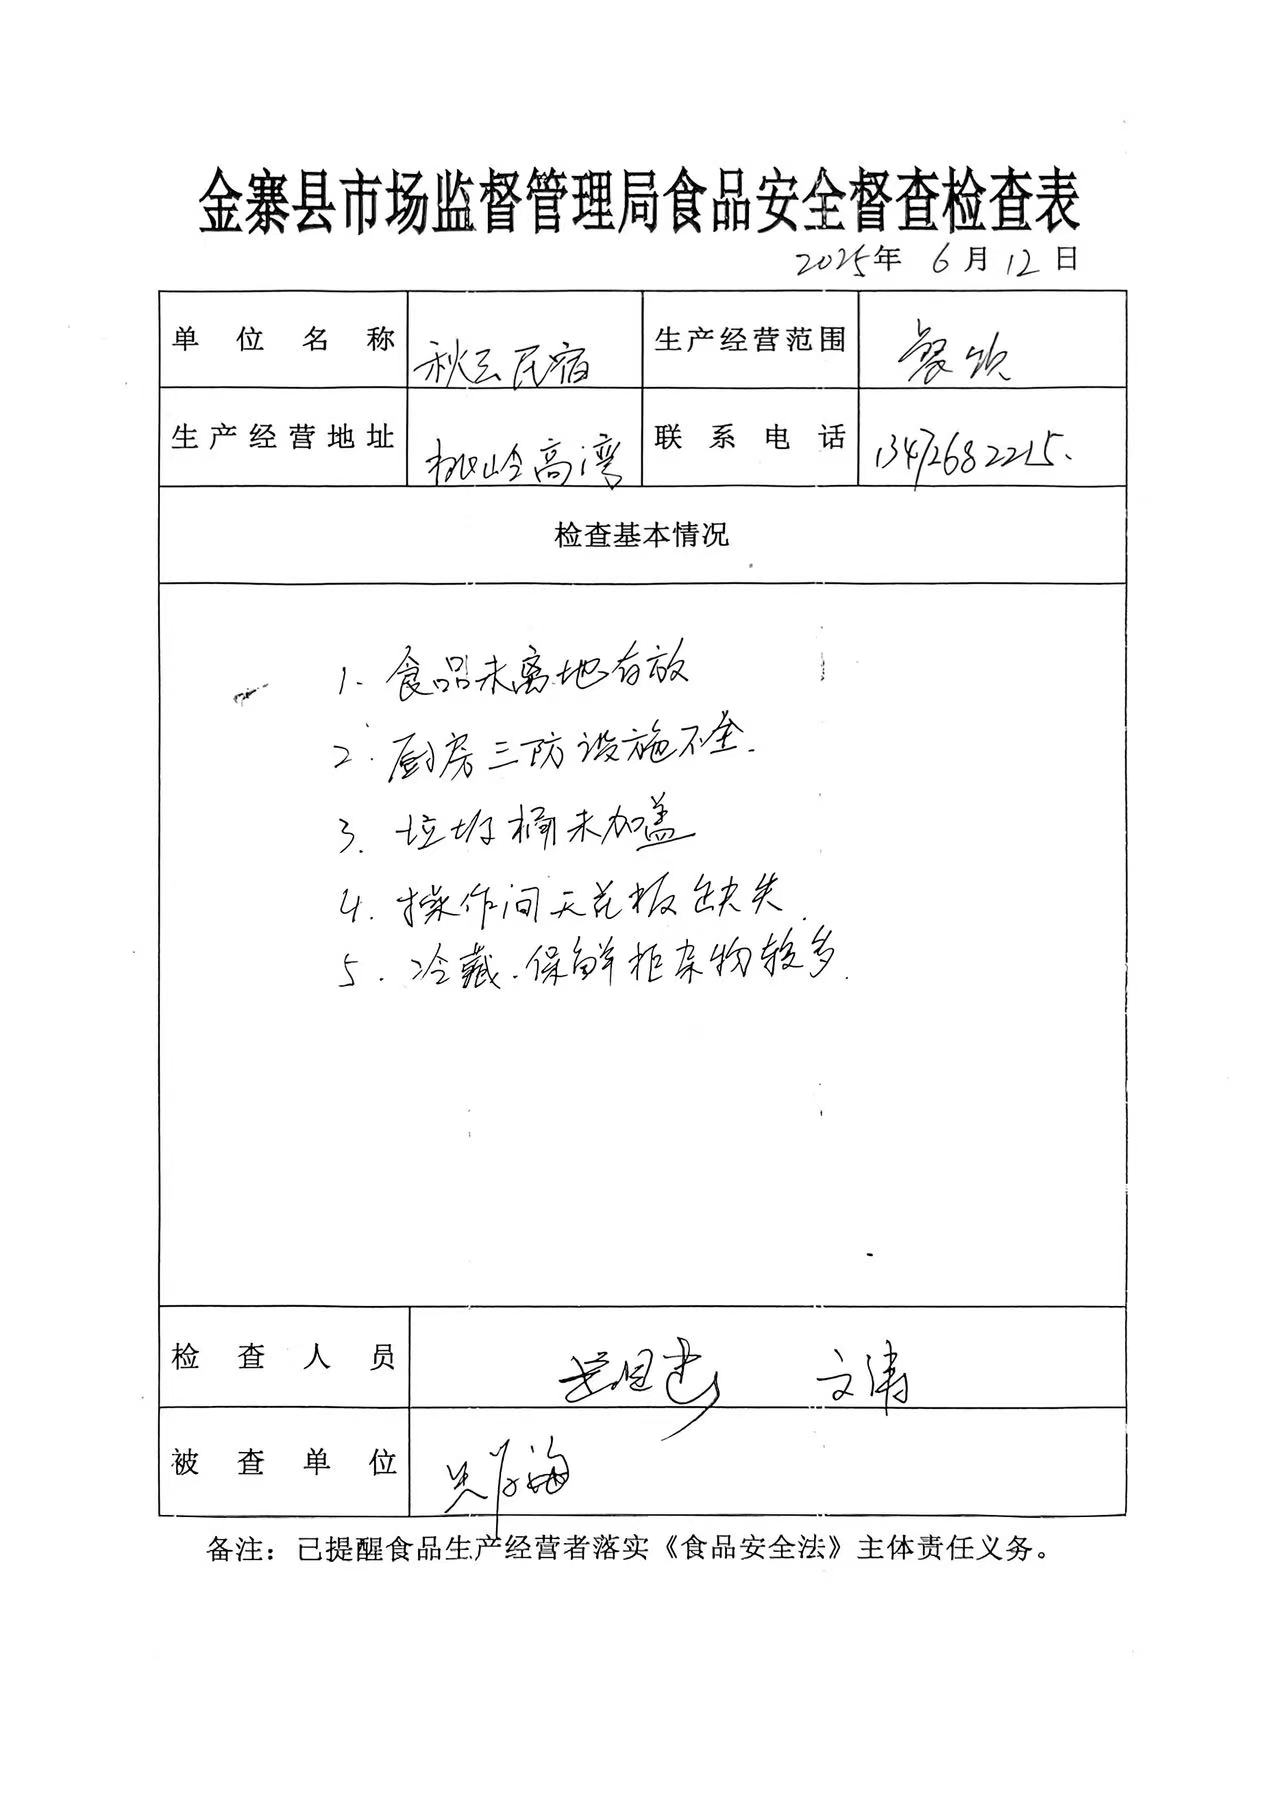 金寨县市场监督管理局食品安全督查检查表
2025年 6月12日
单位名称 秋云民宿 生产经营范围 餐饮
生产经营地址 桃岭高湾 联系电话 13472682215.
检查基本情况
1. 食品未离地存放
2. 厨房三防设施不全.
3. 垃圾桶未加盖
4. 操作间天花板缺失.
5. 冷藏.保鲜柜杂物较多.
检查人员 文涛
被查单位
备注：已提醒食品生产经营者落实《食品安全法》主体责任义务。